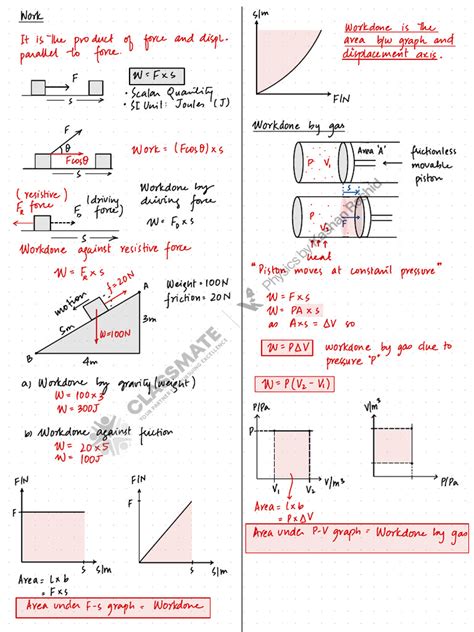 Work
It is the product of force and displ.
parallel to force.
F
s
W = F × s
• Scalar Quantity
• SI Unit: Joules (J)
F
θ
Fcosθ
s
Work = (Fcosθ) × s
(resistive)
FR force)
(driving
FD force)
Workdone by
driving force
W = FD × s
Workdone against resistive force
W = FR × s
motion
f = 20N
Weight = 100N
friction = 20N
A
5m
3m
W=100N
B
4m
a) Workdone by gravity (weight)
W = 100 × 3
W = 300J
b) Workdone against friction
W = 20 × 5
W = 100J
F/N
F
s
s/m
Area = L × b
= F × s
F/N
F
s
s/m
Area under F-s graph = Workdone
s/m
F/N
Workdone is the
area b/w graph and
displacement axis.
Workdone by gas
P V1
Area 'A'
frictionless
movable
piston
s
P V2
heat
"Piston moves at constant pressure"
W = F × s
W = PA × s
as A × s = ΔV so
W = PΔV
workdone by gas due to
pressure "P"
W = P(V2 - V1)
P/Pa
P
V1
V2
V/m³
V/m³
P/Pa
Area = L × b
= P × ΔV
Area under P-V graph = Workdone by gas
CLASSMATE
YOUR PARTNER IN ACHIEVING EXCELLENCE
Physics by Kashan Rashid